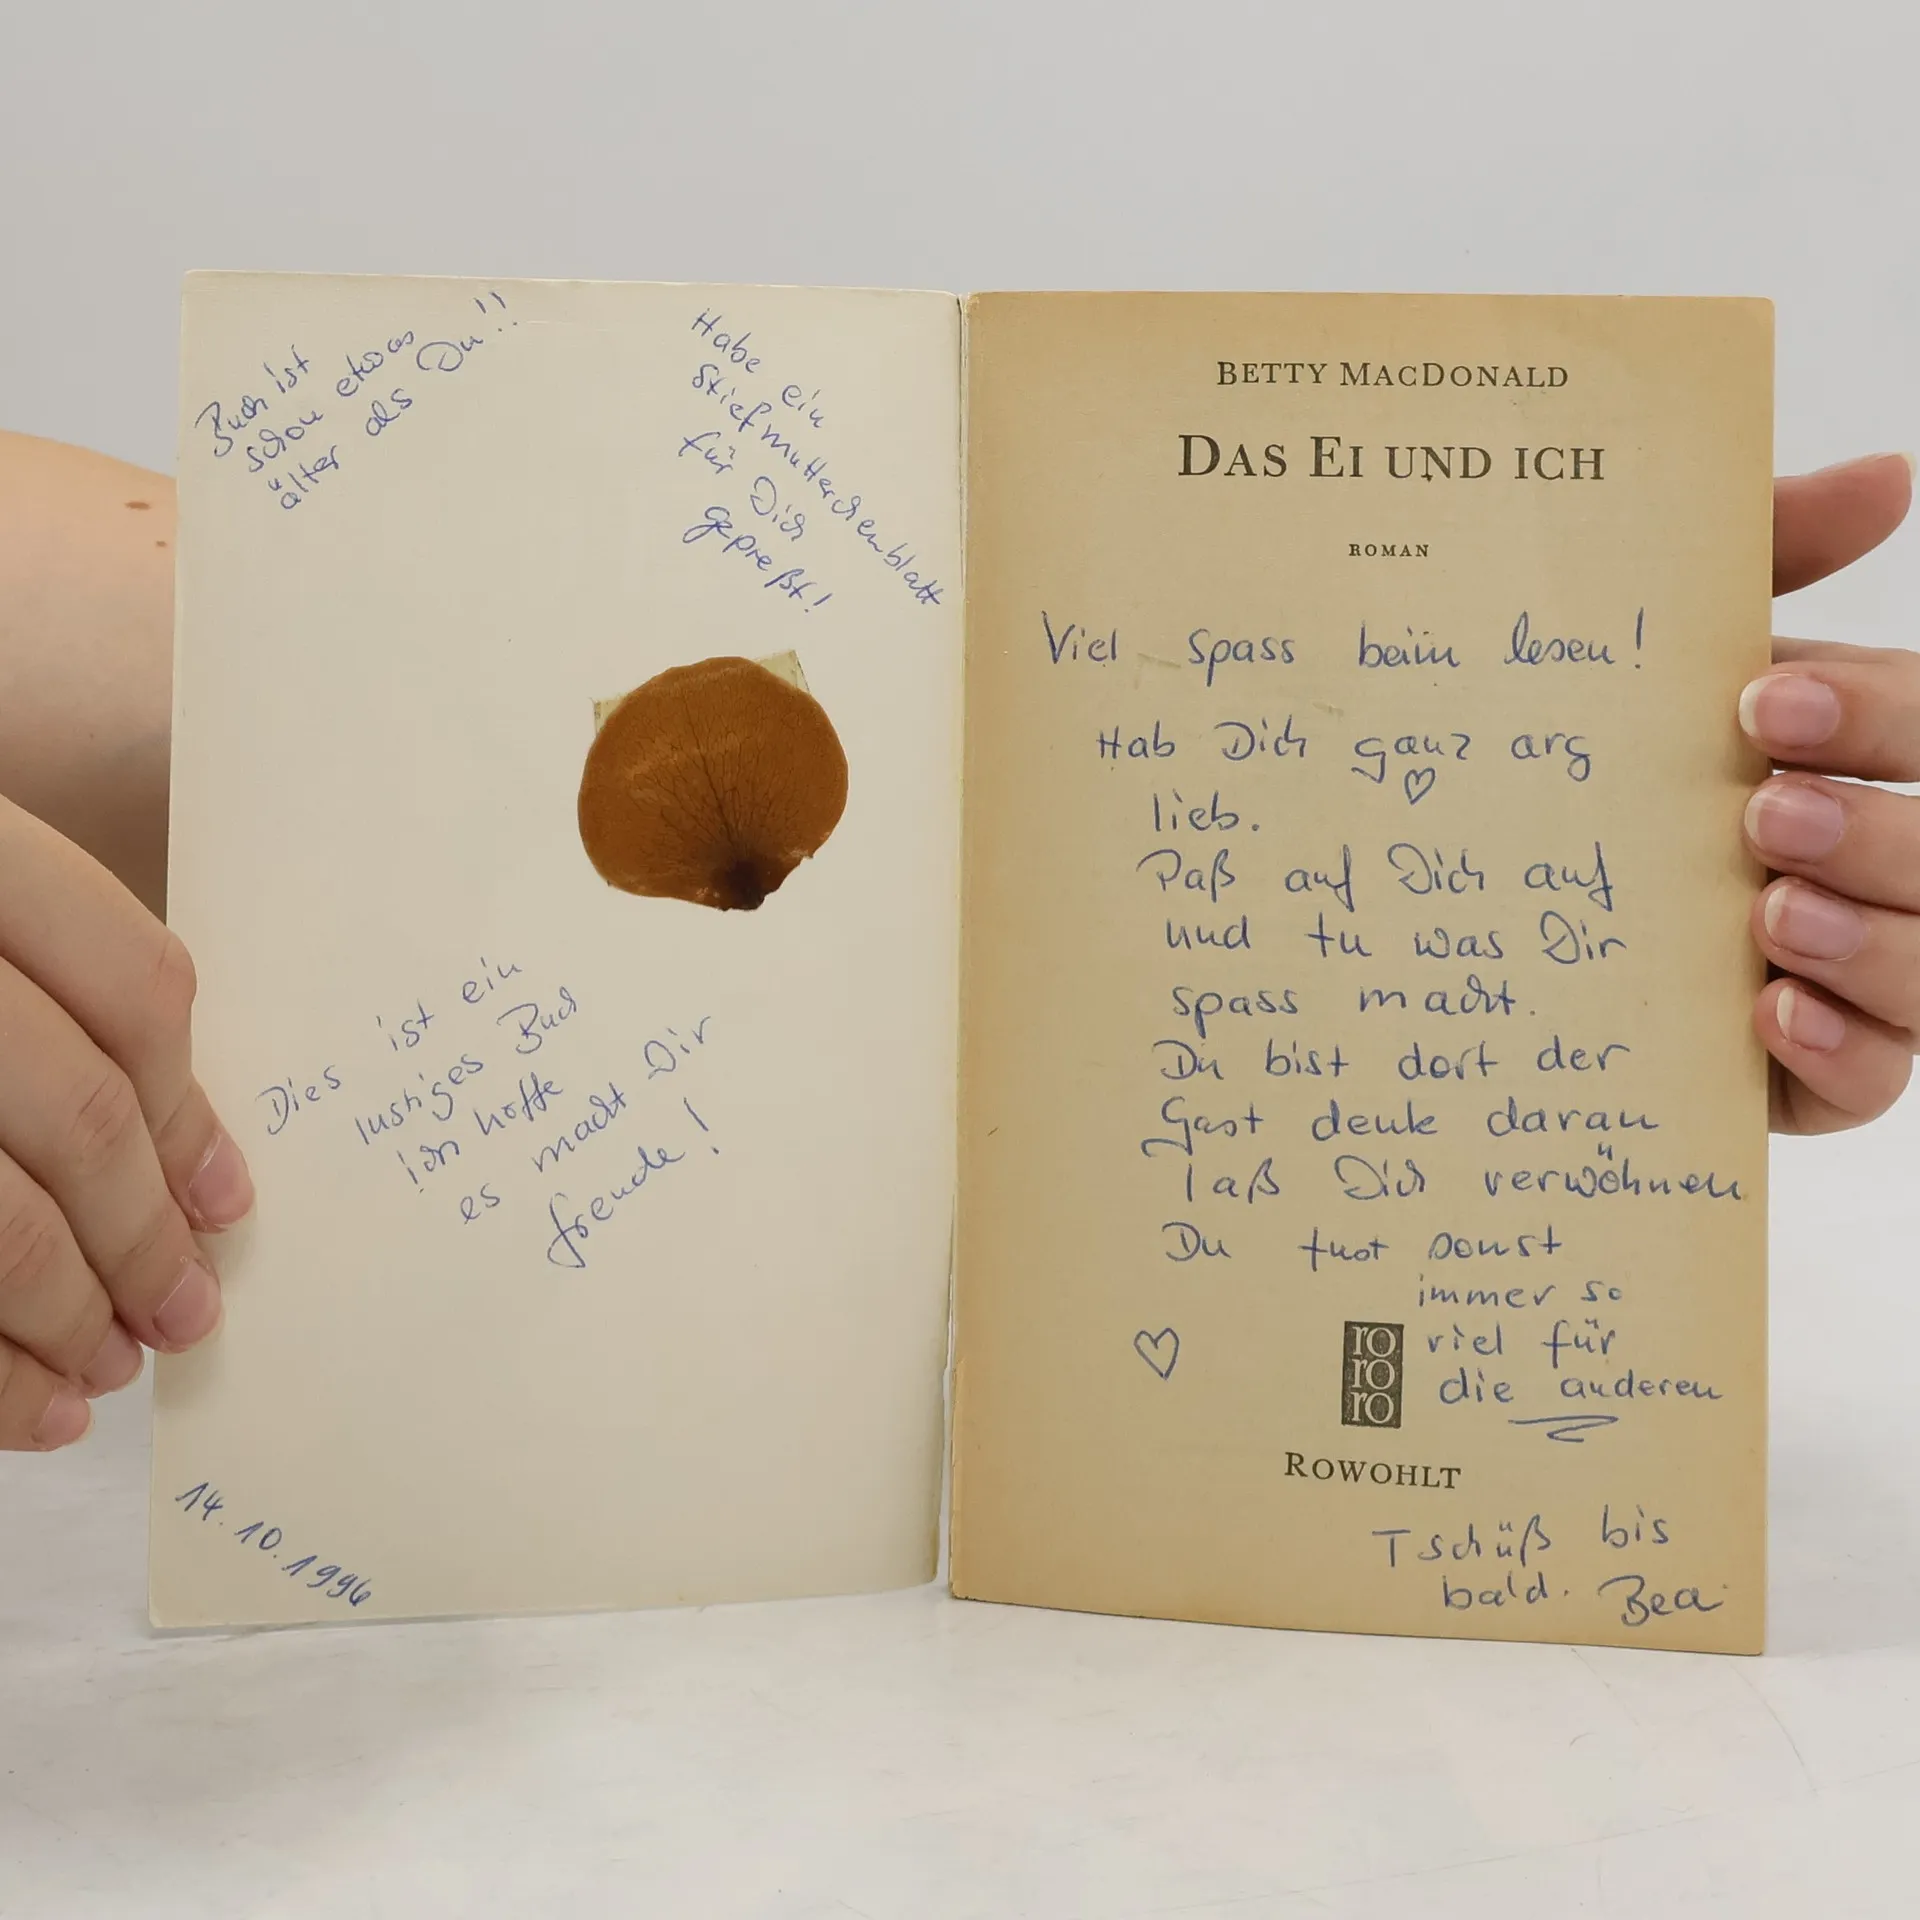 Buch ist
schon etwas
älter als Du!!
Habe ein
Stiefmutterchenblatt
für Dich
gepreßt!
Dies ist ein
lustiges Buch
ich hoffe
es macht Dir
freude!
14.10.1996
BETTY MACDONALD
DAS EI UND ICH
ROMAN
Viel spass beim lesen!
Hab Dich ganz arg
lieb.
Paß auf Dich auf
und tu was Dir
spass macht.
Du bist dort der
Gast denk daran
laß Dich verwöhnen
Du tust sonst
immer so
viel für
die anderen
ro
ro
ro
ROWOHLT
Tschüß bis
bald. Bea